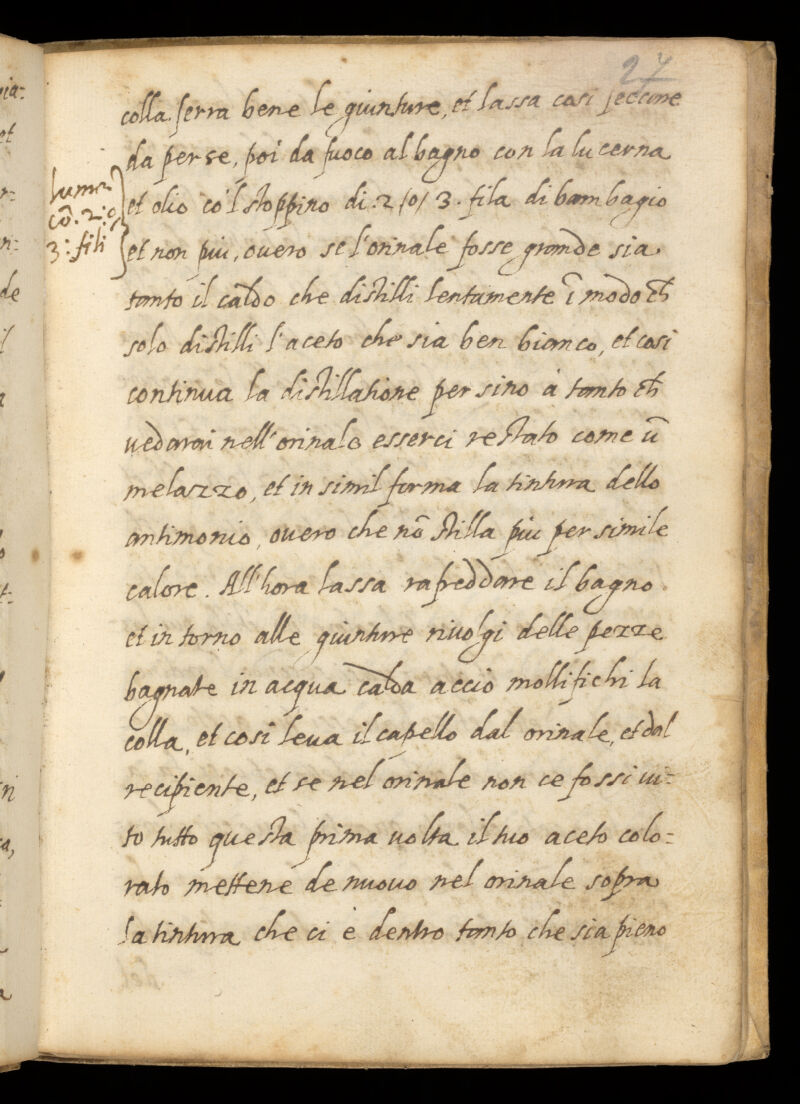 27
colla. serra bene le giunture, et lassa cosi seccare
da per se, poi da fuoco al bagno con la lucerna
et olio co'l stoppino di .2 /o/ 3. fila di bambagio
et non piu, ouero se l'orinale fosse grande sia
tanto il caldo che distilli lentamente ī modo ch̄
solo distilli l'aceto che sia ben bianco, et cosi
continua la distillatione per sino à tanto ch̄
uedarai nell'orinale esserci restato come ū
melazzo, et in simil forma la tintura dello
antimonio, ouero che nō stilla piu per simile
calore. All'hora lassa rafreddare il bagno
et in torno alle giunture riuolgi delle pezze
bagnate in acqua calda acciò mollifichi la
colla, et cosi leua il capello dal orinale, et dal
recipiente, et se nel orinale non ce fossi ui=
to tutto questa prima uolta il tuo aceto colo=
rato mettene de nuouo nel orinale sopra
la tintura che ci è dentro tanto che sia pieno
lume
cō .2: o
3: fili